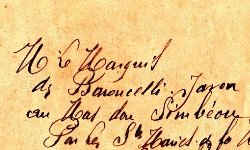 M. le Marquis
de Baroncelli-Javon
au Mas dou Simbéou
Par les Stes Maries de la